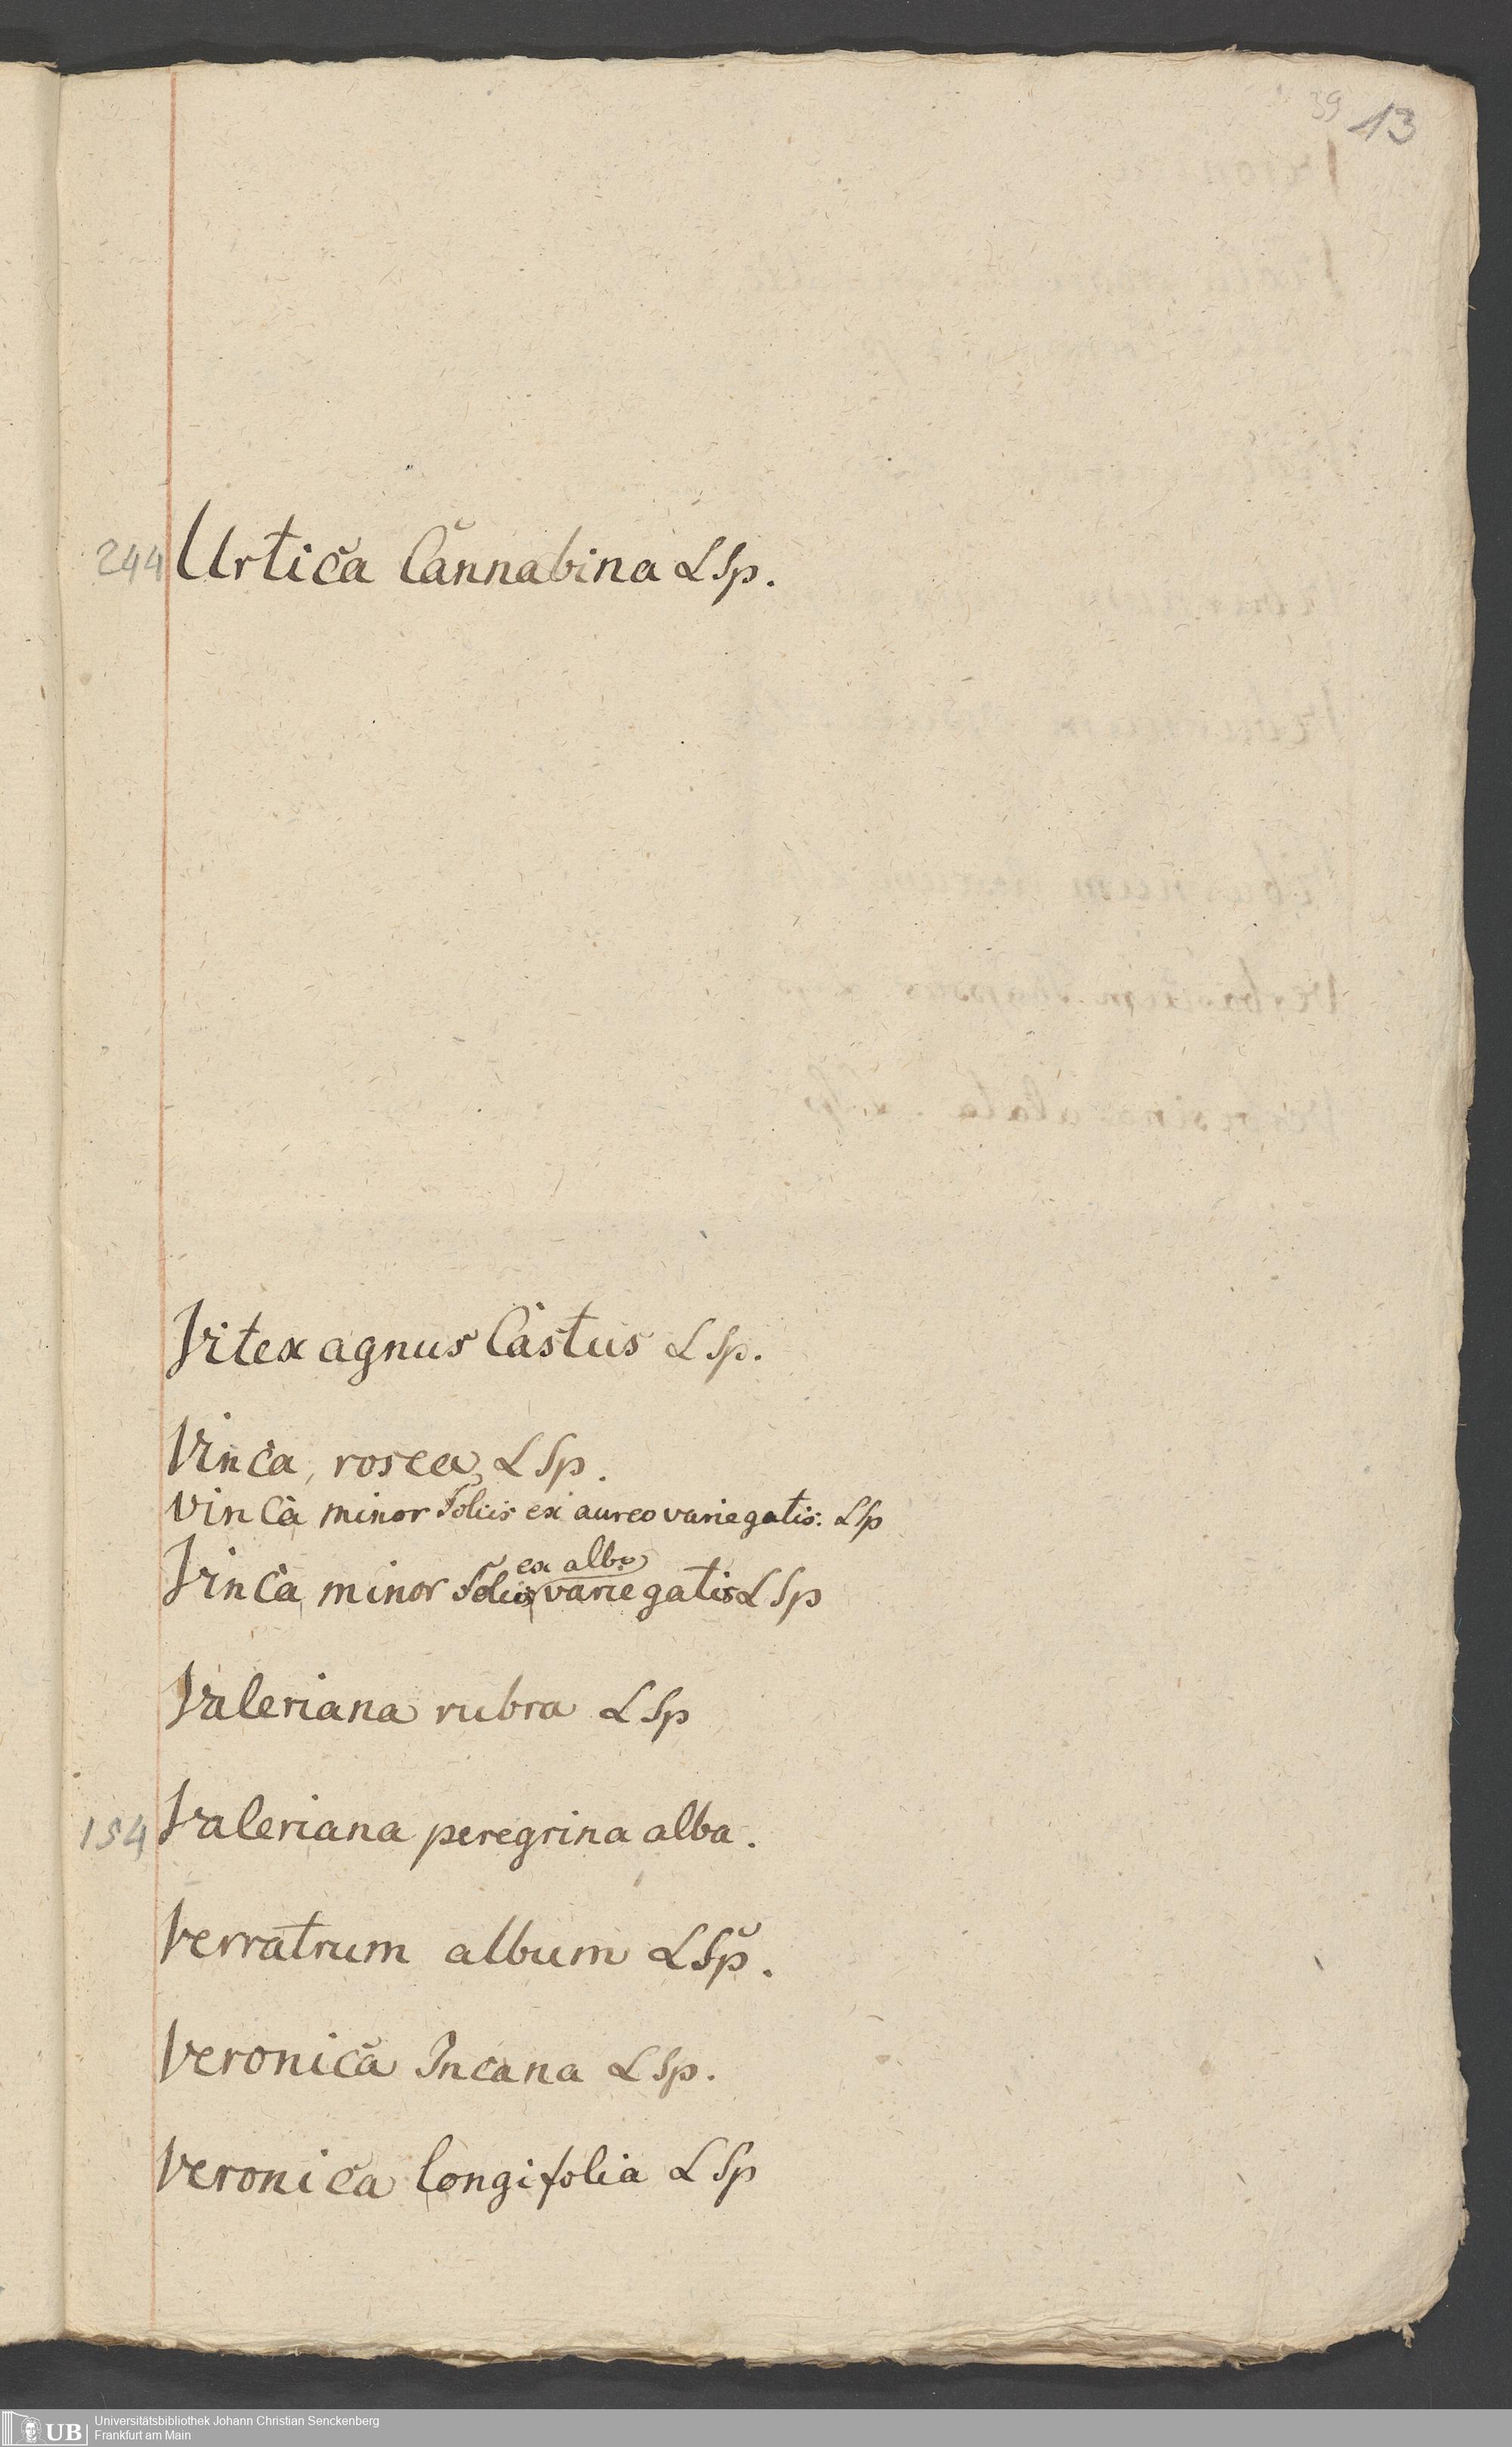 39 13
244 Urtica Cannabina L Sp.
Vitex agnus Castus L Sp.
Vinca, rosea, L Sp.
Vinca minor Foliis ex aureo variegatis. L Sp
ex albo
Vinca minor Foliis variegatis L Sp
Valeriana rubra L Sp
154 Valeriana peregrina alba.
Verratrum album L Sp.
Veronica Incana L Sp.
Veronica longifolia L Sp
UB Universitätsbibliothek Johann Christian Senckenberg
Frankfurt am Main